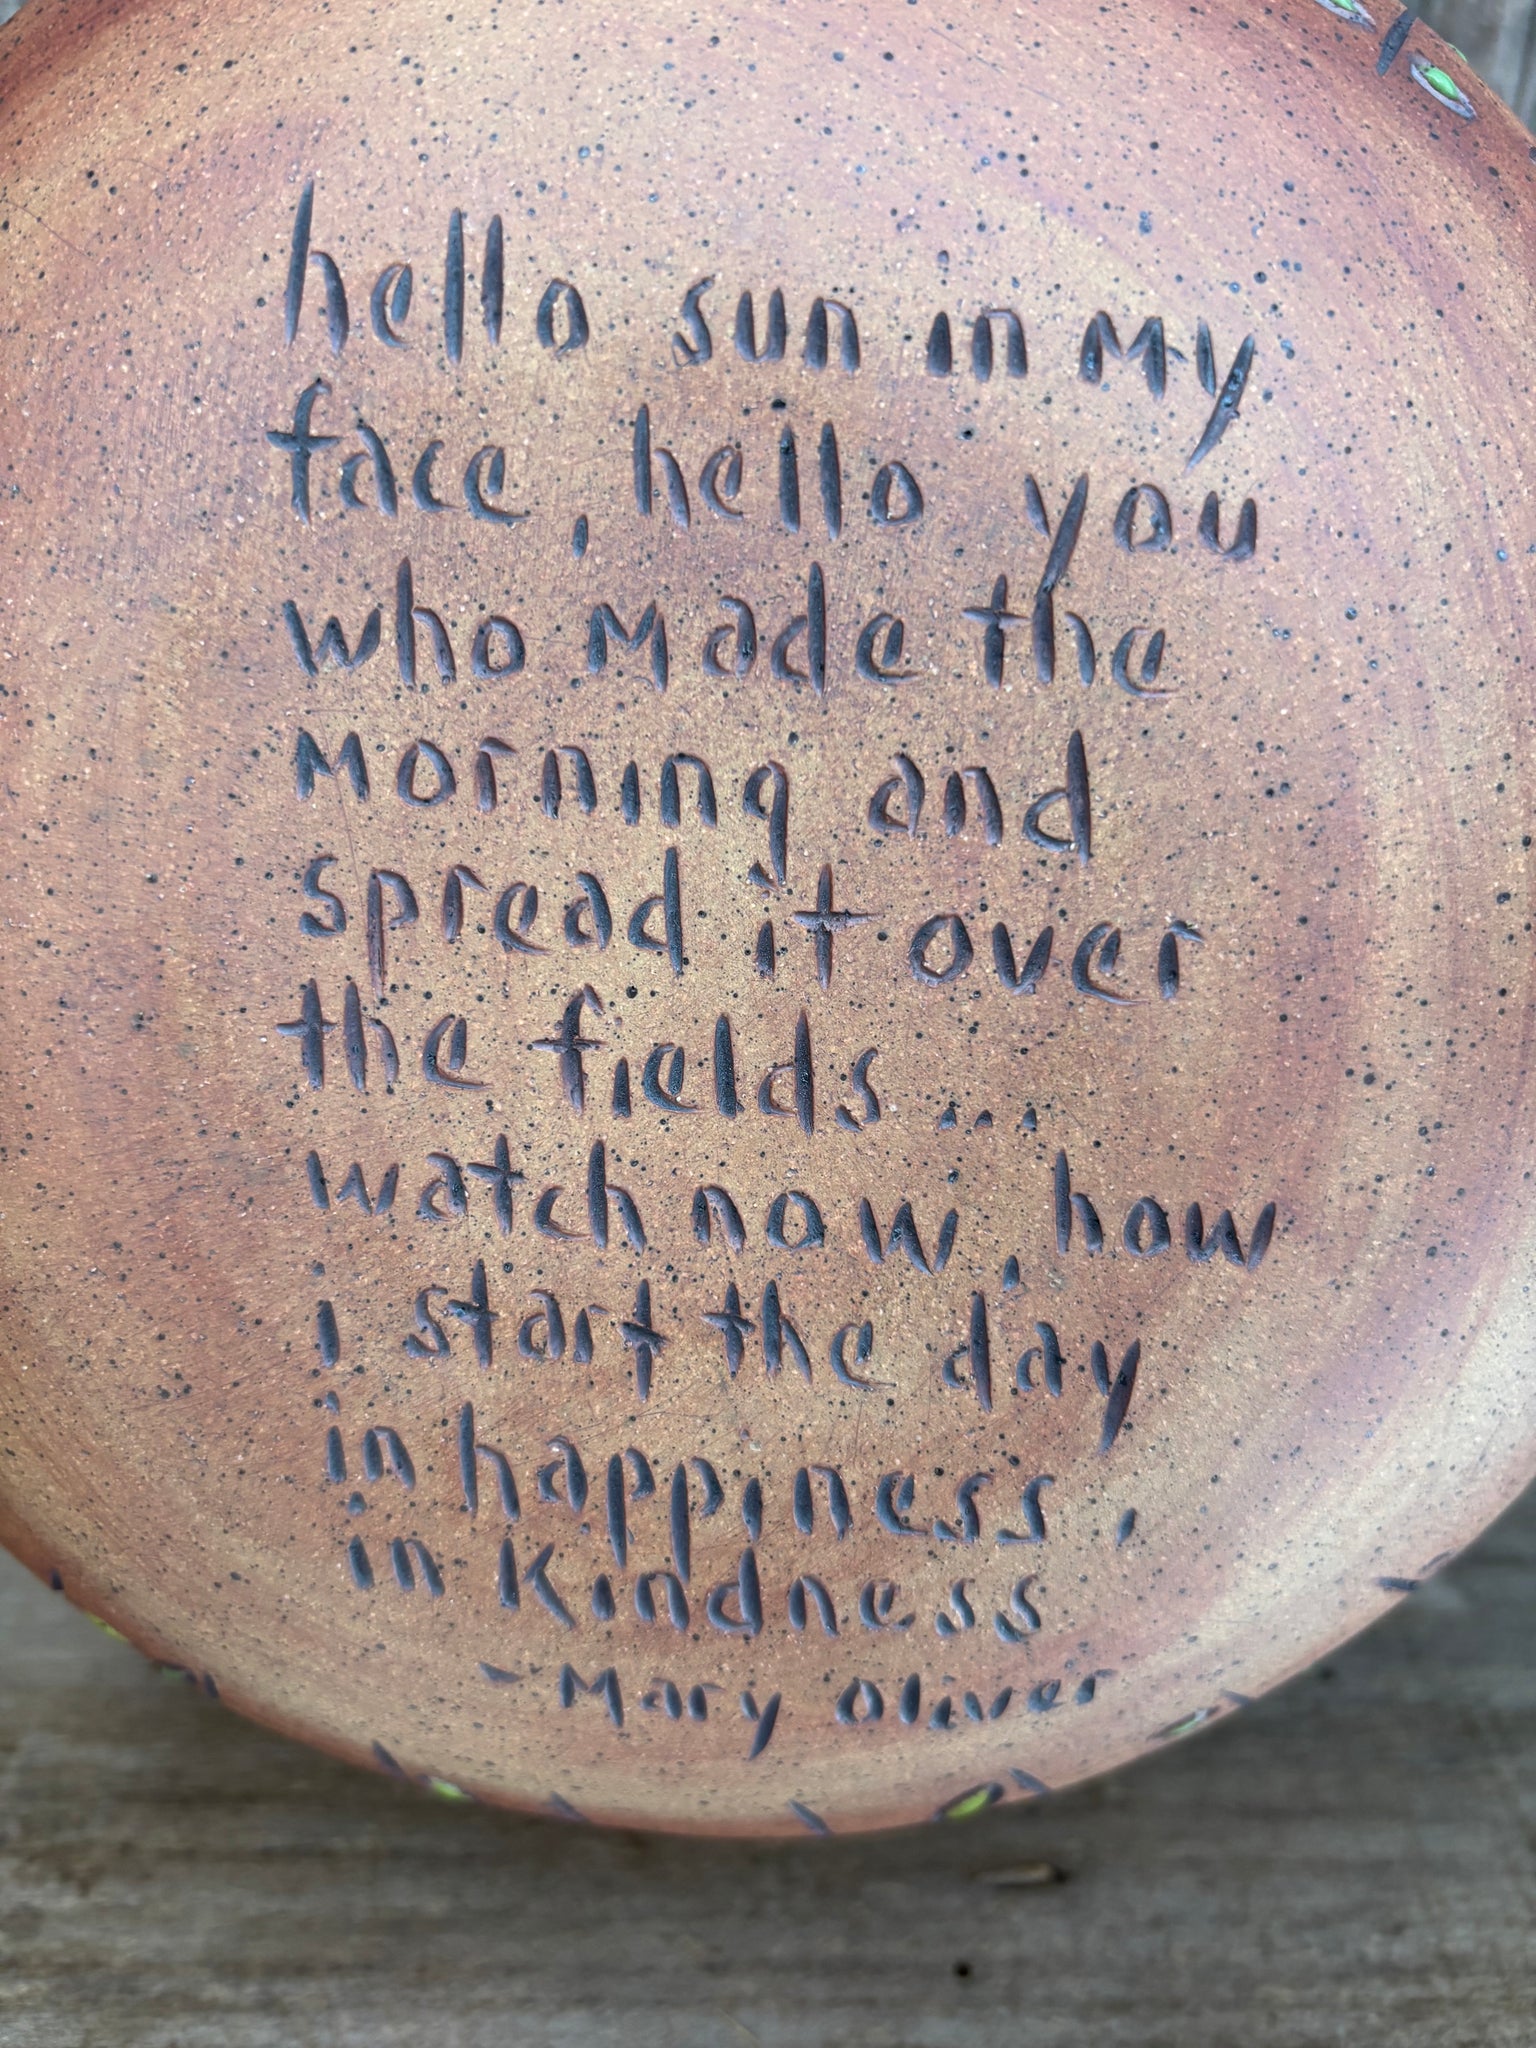 hello sun in my
face, hello you
who made the
morning and
spread it over
the fields...
watch now, how
i start the day
in happiness,
in kindness
- Mary Oliver